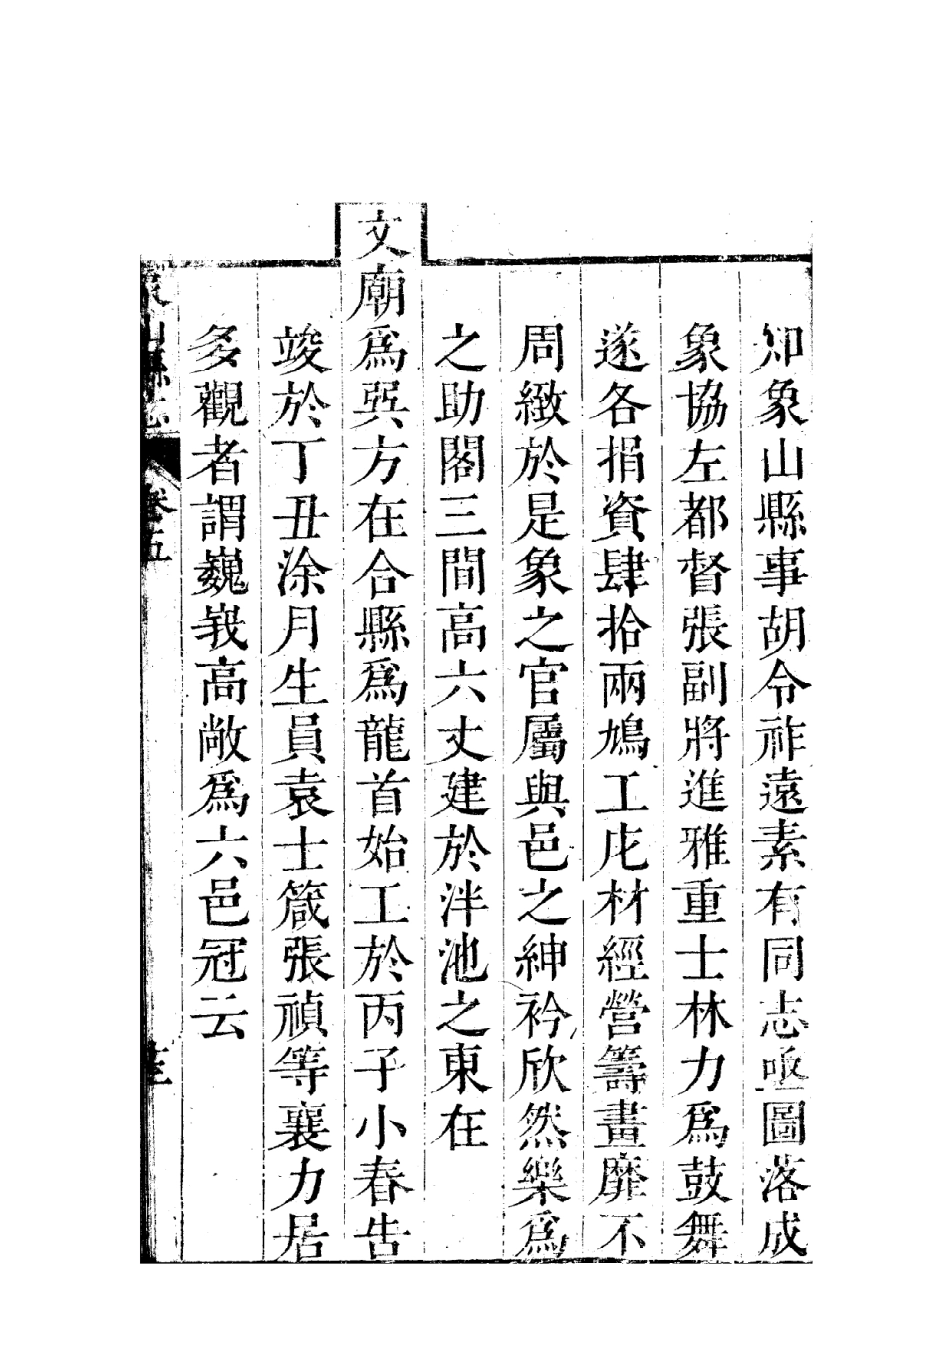 知象山縣事胡令祚遠素有同志亟圖落成
象協左都督張副將進雅重士林力爲鼓舞
遂各捐資肆拾兩鳩工庀材經營籌畫靡不
周緻於是象之官屬與邑之紳衿欣然樂爲
之助閣三間高六丈建於泮池之東在
文廟爲巽方在合縣爲龍首始工於丙子小春告
竣於丁丑涂月生員袁士箴張禎等襄力居
多觀者謂巍峩高敞爲六邑冠云
山縣志 卷五